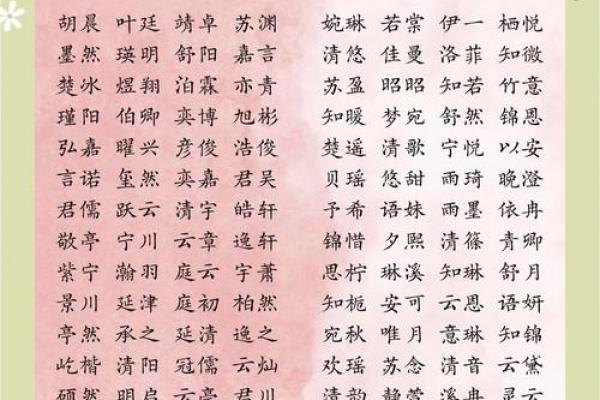 胡晨 叶廷 靖卓 苏渊 婉琳 若棠 伊一 栖悦
墨然 瑛明 舒阳 嘉言 清悠 佳曼 洛菲 知微
楚冰 煜翔 泊霖 亦青 苏盈 昭昭 知若 竹意
瑾阳 伯卿 奕博 旭彬 知暖 梦宛 舒然 锦恩
弘嘉 曜兴 彦俊 浩俊 楚遥 清歌 宁悦 以安
言诺 玺然 奕嘉 君吴 贝瑶 悠甜 雨琦 晚澄
君儒 跃云 清宇 皓轩 予希 语妹 雨墨 依冉
敬亭 宁川 云章 逸轩 锦惜 夕熙 清篠 青卿
紫宁 瀚羽 庭云 宇萧 思柠 琳溪 知琳 舒月
景川 延津 庭初 柏然 知栀 安可 云恩 语妍
亭然 承之 延清 逸之 宛秋 唯月 意琳 知锦
屹楷 清阳 冠儒 云灿 欢瑶 苏念 清音 云黛
硕然 明启 云亭 君川 清韵 静萱 溪冉 灵云